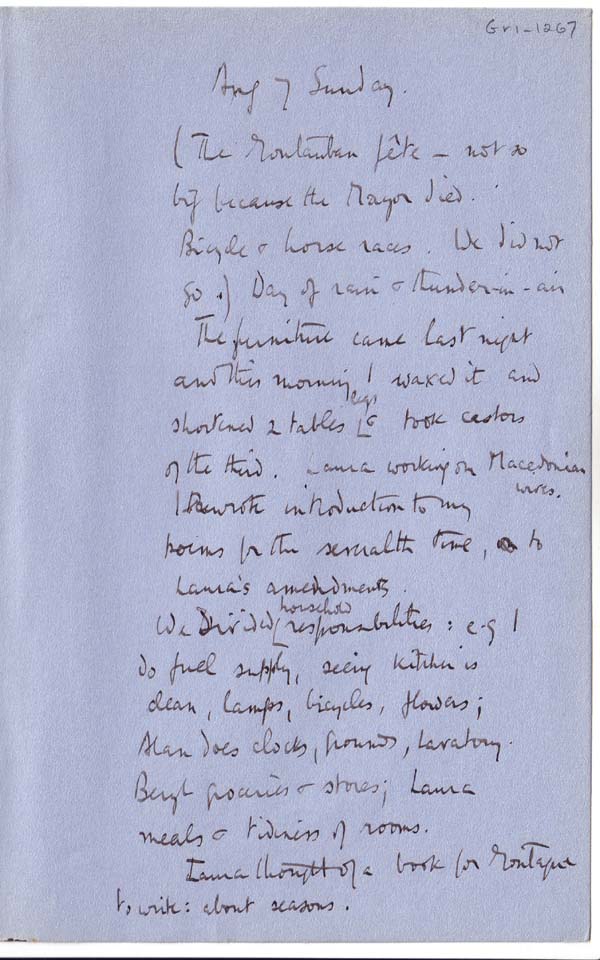 GrI-1267
Aug 7 Sunday.
(The Montauban fête – not so
big because the Mayor died.
Bicycle & horse races. We did not
go.) Day of rain & thunder-in-air
The furniture came last night
and this morning I waxed it and
shortened 2 tables legs & took castors
of the third. Laura working on Macedonian
wives.
I rewrote introduction to my
poems for the severalth time, to
Laura's amendments.
We divided household responsibilities: e.g I
do fuel supply, seeing kitchen is
clean, lamps, bicycles, flowers;
Alan does clocks, grounds, lavatory.
Beryl groceries & stores; Laura
meals & tidiness of rooms.
Laura thought of a book for Montague
to write: about seasons.